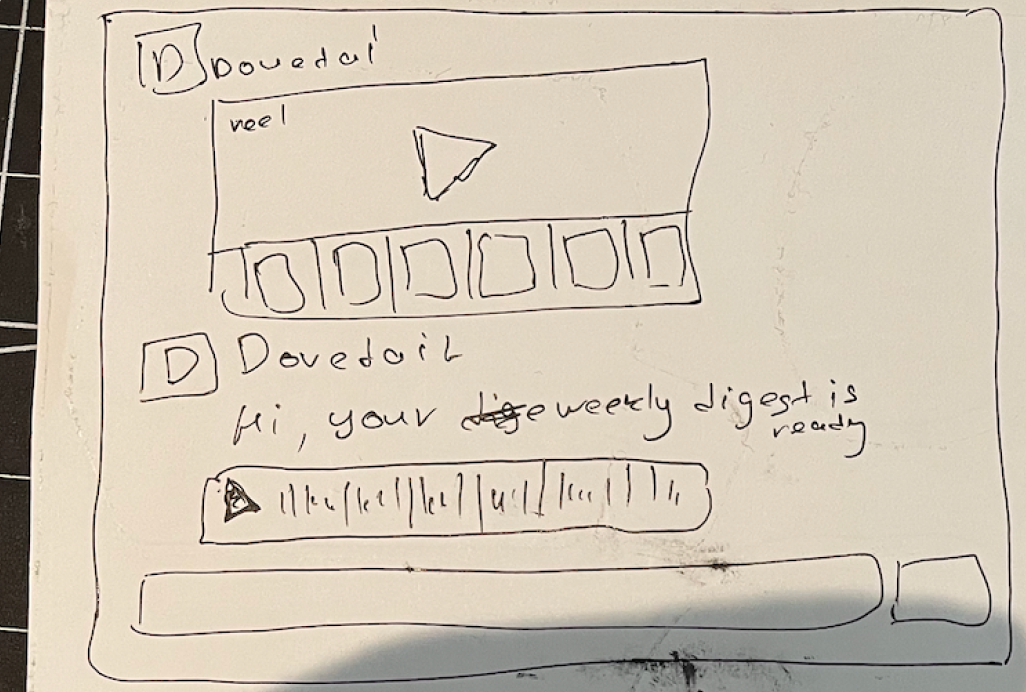 D Dovedail
reel
D Dovedail
Hi, your weekly digest is
ready